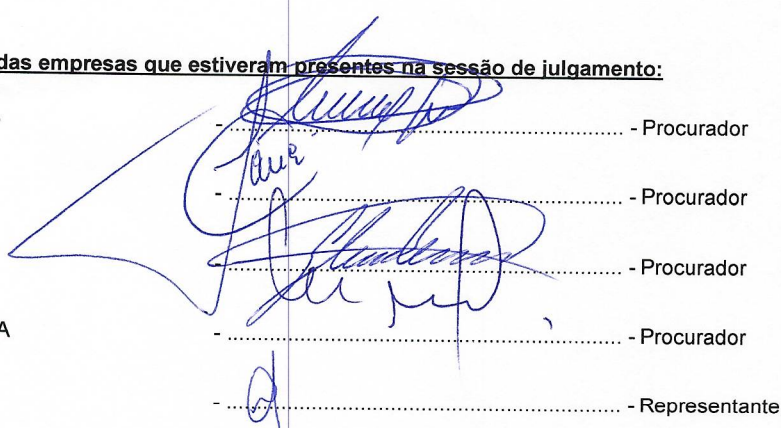 das empresas que estiveram presentes na sessão de julgamento:
- ........................................................ - Procurador
- ........................................................ - Procurador
- ........................................................ - Procurador
A - ........................................................ - Procurador
- ........................................................ - Representante